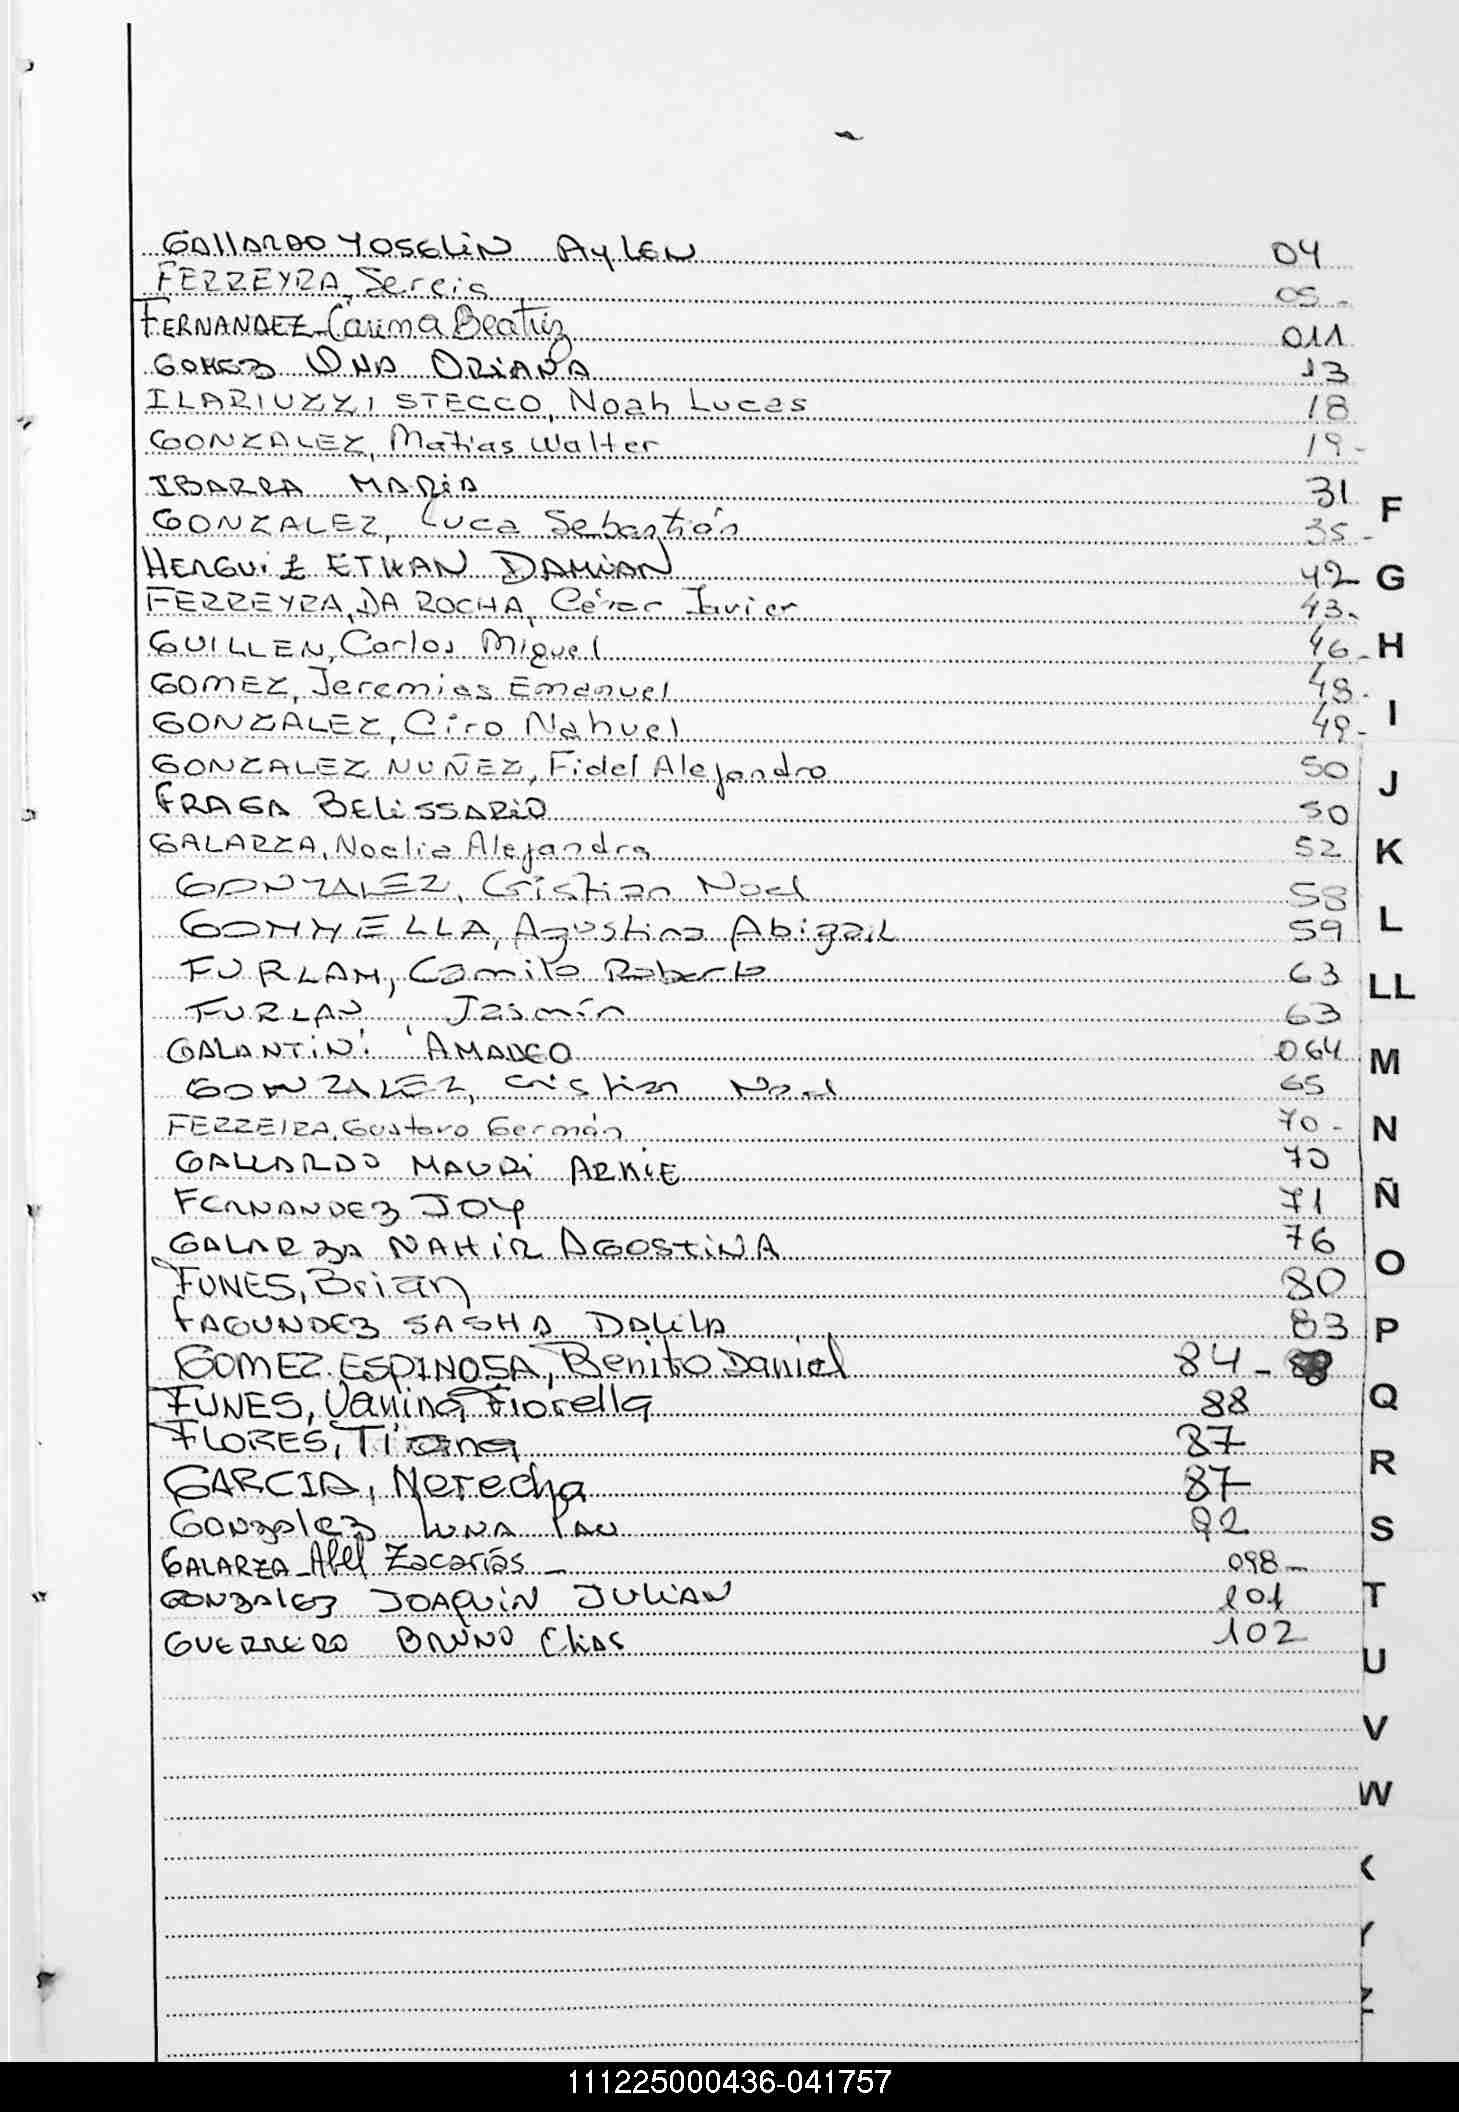 GALLARDO YOSELIN AYLEN 04
FERREYRA, Sergio 05-
FERNANDEZ-Carina Beatriz 011
GOMEZ UMA ORIANA 13
ILARIUZZI STECCO, Noah Lucas 18
GONZALEZ, Matias Walter 19-
IBARRA MARIA 31
F
GONZALEZ, Luca Sebastián 35-
HERGUIZ ETHAN DAMIAN 42
G
FERREYRA DA ROCHA, César Javier 43-
GUILLEN, Carlos Miguel 46-
H
GOMEZ, Jeremias Emanuel 48-
GONZALEZ, Ciro Nahuel 49-
I
GONZALEZ NUÑEZ, Fidel Alejandro 50
J
FRAGA BELISSARIO 50
GALARZA, Noelia Alejandra 52
K
GONZALEZ, Cristian Noel 58
GONNELLA, Agustina Abigail 59
L
FURLAN, Camilo Roberto 63
LL
FURLAN, Jasmín 63
GALANTINI AMADEO 064
M
GONZALEZ, Cristian Noel 65
FERREIRA, Gustavo Germán 70-
N
GALLARDO MAURI ARNIE 70
FERNANDEZ JOY 71
Ñ
GALARZA NAHIR AGOSTINA 76
O
FUNES, Brian 80
FAGUNDEZ SASHA DALILA 83
P
GOMEZ ESPINOSA, Benito Daniel 84-
FUNES, Vanina Fiorella 88
Q
FLORES, Tiziana 87
R
GARCIA, Nerecha 87
GONZALEZ LUNA PAU 92
S
GALARZA-Abel Zacarías- 098-
GONZALEZ JOAQUIN JULIAN 101
T
GUERRERO BRUNO Elias 102
U
V
W
X
Y
Z
111225000436-041757